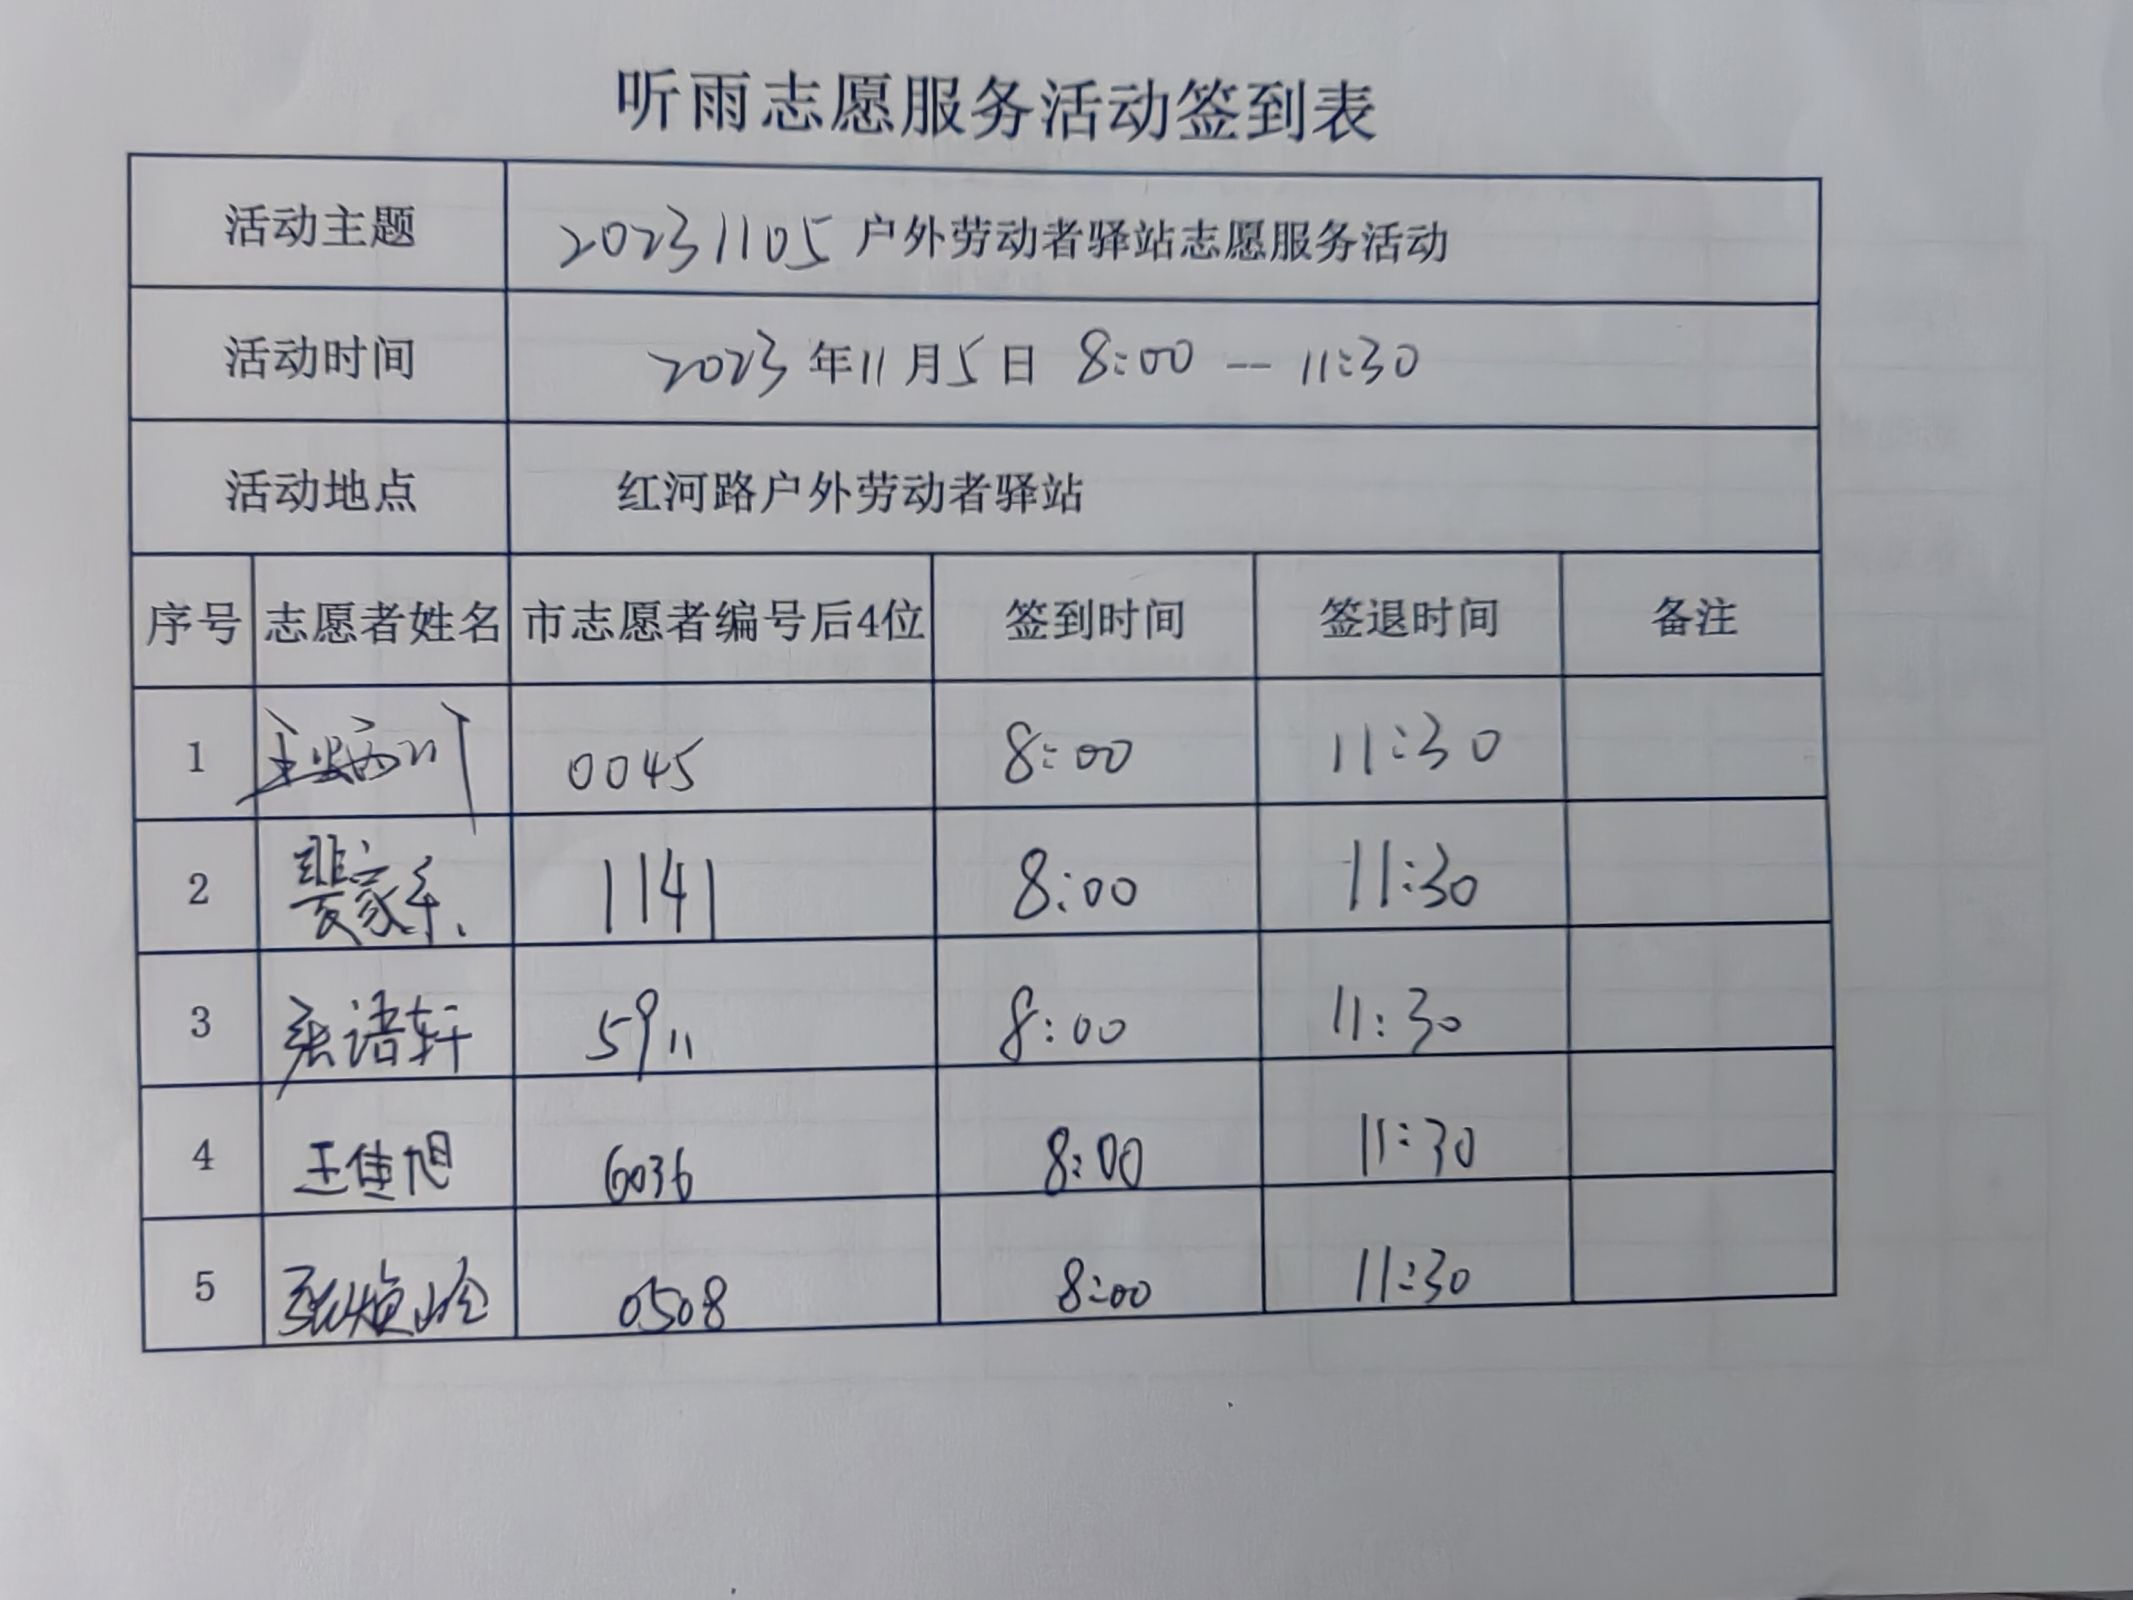 听雨志愿服务活动签到表
活动主题 20231105户外劳动者驿站志愿服务活动
活动时间 2023年11月5日 8:00--11:30
活动地点 红河路户外劳动者驿站
序号 志愿者姓名 市志愿者编号后4位 签到时间 签退时间 备注
1 0045 8:00 11:30
2 1141 8:00 11:30
3 张语轩 5911 8:00 11:30
4 王佳旭 6036 8:00 11:30
5 0508 8:00 11:30